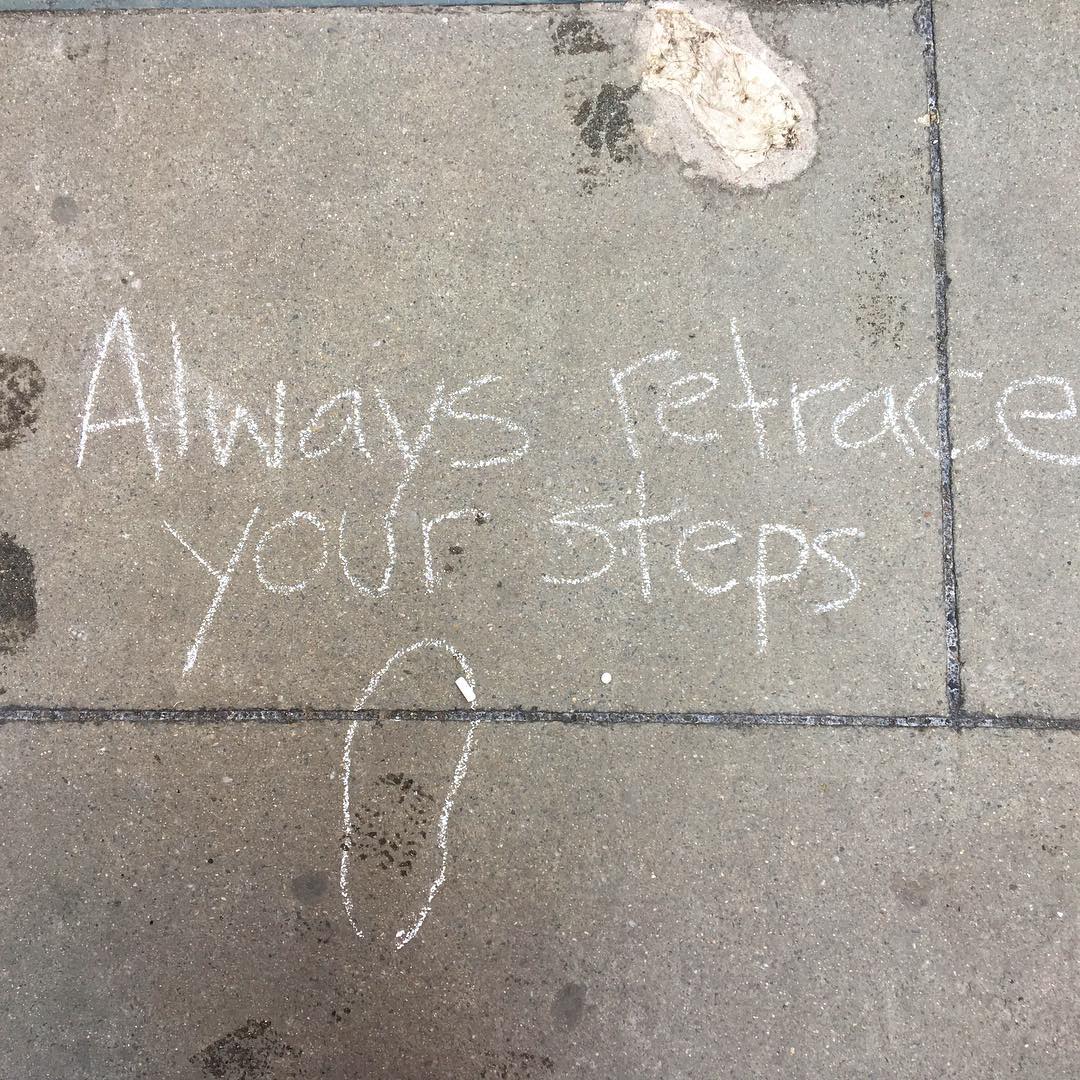 Always retrace
your steps